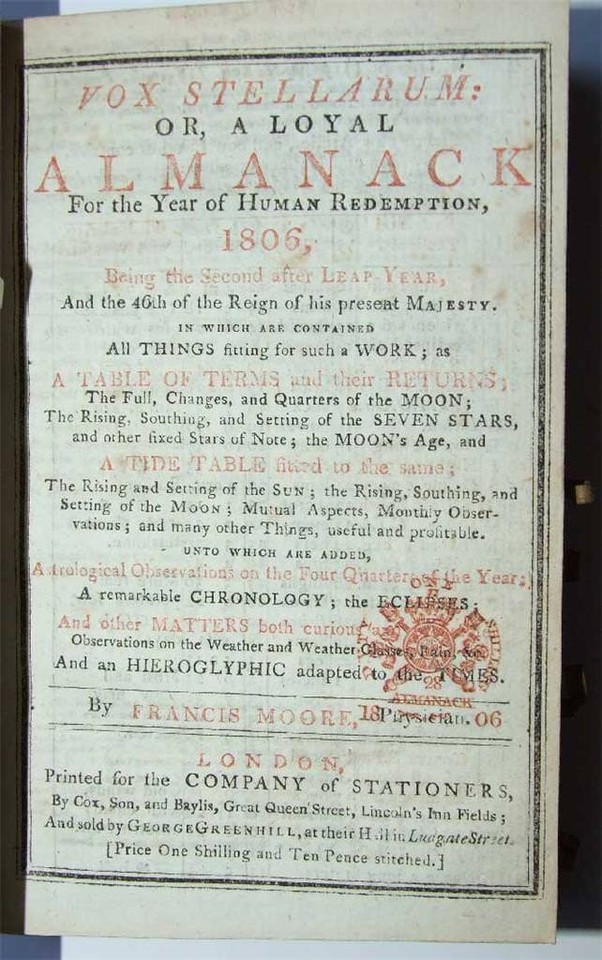 VOX STELLARUM:
OR, A LOYAL
ALMANACK
For the Year of HUMAN REDEMPTION,
1806,
Being the Second after LEAP-YEAR,
And the 46th of the Reign of his present MAJESTY.
IN WHICH ARE CONTAINED
All THINGS fitting for such a WORK; as
A TABLE OF TERMS and their RETURNS;
The Full, Changes, and Quarters of the MOON;
The Rising, Southing, and Setting of the SEVEN STARS,
and other fixed Stars of Note; the MOON's Age, and
A TIDE TABLE fitted to the same;
The Rising and Setting of the SUN; the Rising, Southing, and
Setting of the MOON; Mutual Aspects, Monthly Obser-
vations; and many other Things, useful and profitable.
UNTO WHICH ARE ADDED,
Astrological Observations on the Four Quarters of the Year;
A remarkable CHRONOLOGY; the ECLIPSES;
And other MATTERS both curious and
Observations on the Weather and Weather Glasses, Rain, &c.
And an HIEROGLYPHIC adapted to the TIMES.
28
ALMANACK
By FRANCIS MOORE, Physician.
18 06
LONDON,
Printed for the COMPANY of STATIONERS,
By Cox, Son, and Baylis, Great Queen Street, Lincoln's Inn Fields;
And sold by GEORGE GREENHILL, at their Hall in Ludgate Street.
[Price One Shilling and Ten Pence stitched.]